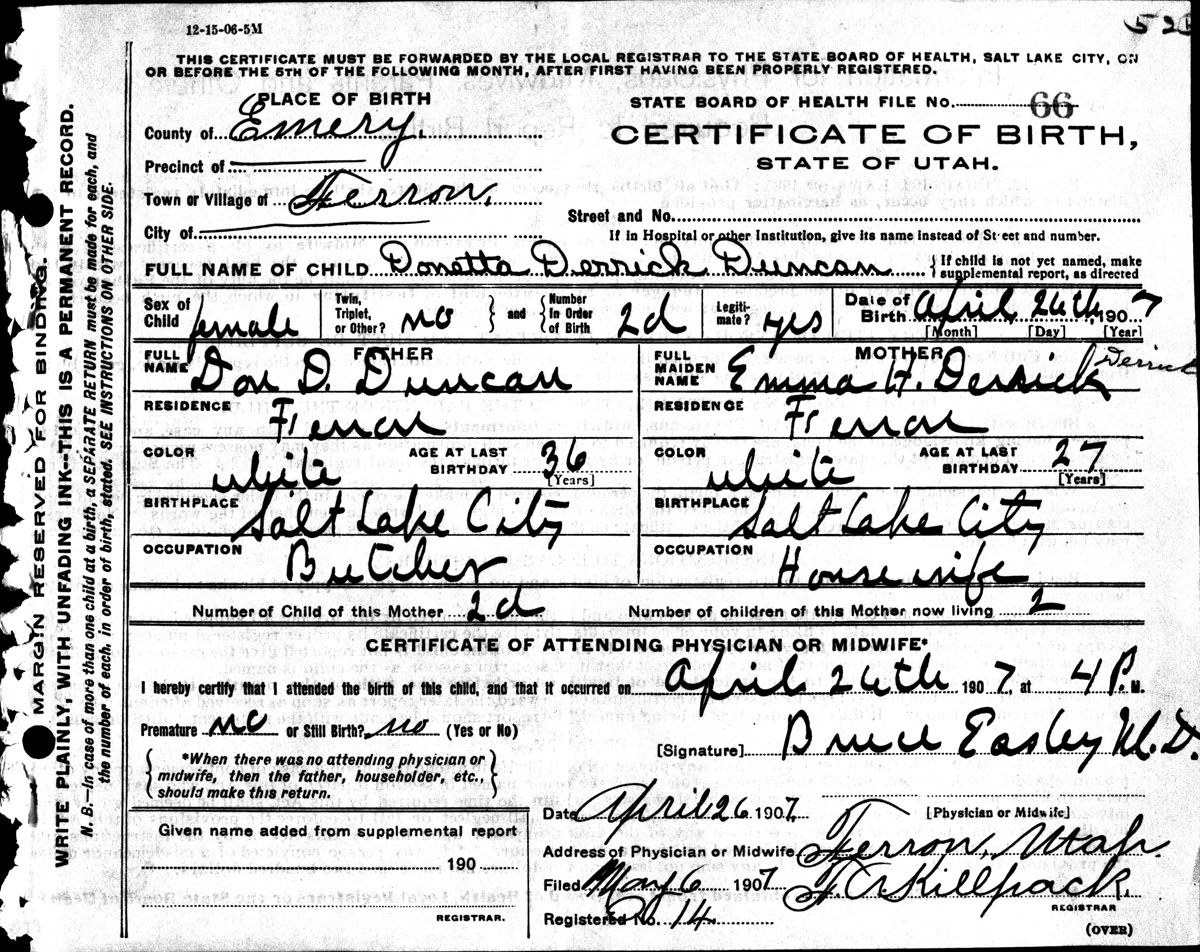 12-15-06-5M
THIS CERTIFICATE MUST BE FORWARDED BY THE LOCAL REGISTRAR TO THE STATE BOARD OF HEALTH, SALT LAKE CITY, ON
OR BEFORE THE 5TH OF THE FOLLOWING MONTH, AFTER FIRST HAVING BEEN PROPERLY REGISTERED.
PLACE OF BIRTH
County of Emery
Precinct of
Town or Village of Ferron.
City of
STATE BOARD OF HEALTH FILE NO. 66
CERTIFICATE OF BIRTH,
STATE OF UTAH.
Street and No.
If in Hospital or other Institution, give its name instead of Street and number.
FULL NAME OF CHILD Donetta Derrick Duncan { If child is not yet named, make
supplemental report, as directed
Sex of Child female Twin, Triplet, or Other? no } and { Number In Order of Birth 2d Legiti- mate? yes Date of Birth April 26th, 1907
[Month] [Day] [Year]
FATHER
FULL NAME Don D. Duncan
RESIDENCE Ferron
COLOR white AGE AT LAST BIRTHDAY 36 [Years]
BIRTHPLACE Salt Lake City
OCCUPATION Butcher
MOTHER
FULL MAIDEN NAME Emma H. Derrick Derrick
RESIDENCE Ferron
COLOR white AGE AT LAST BIRTHDAY 27 [Years]
BIRTHPLACE Salt Lake City
OCCUPATION Housewife
Number of Child of this Mother 2d Number of children of this Mother now living 2
CERTIFICATE OF ATTENDING PHYSICIAN OR MIDWIFE*
I hereby certify that I attended the birth of this child, and that it occurred on April 26th 1907, at 4 P. M.
Premature no or Still Birth? no (Yes or No)
[Signature] Bruce Easley M.D.
{ *When there was no attending physician or
midwife, then the father, householder, etc.,
should make this return. }
Date April 26 1907. [Physician or Midwife]
Given name added from supplemental report
190
REGISTRAR.
Address of Physician or Midwife Ferron, Utah.
Filed May 6 1907 Killpack.
REGISTRAR
Registered No. 14
(OVER)
MARGIN RESERVED FOR BINDING.
WRITE PLAINLY, WITH UNFADING INK--THIS IS A PERMANENT RECORD.
N. B.--In case of more than one child at a birth, a SEPARATE RETURN must be made for each, and
the number of each, in order of birth, stated. SEE INSTRUCTIONS ON OTHER SIDE.